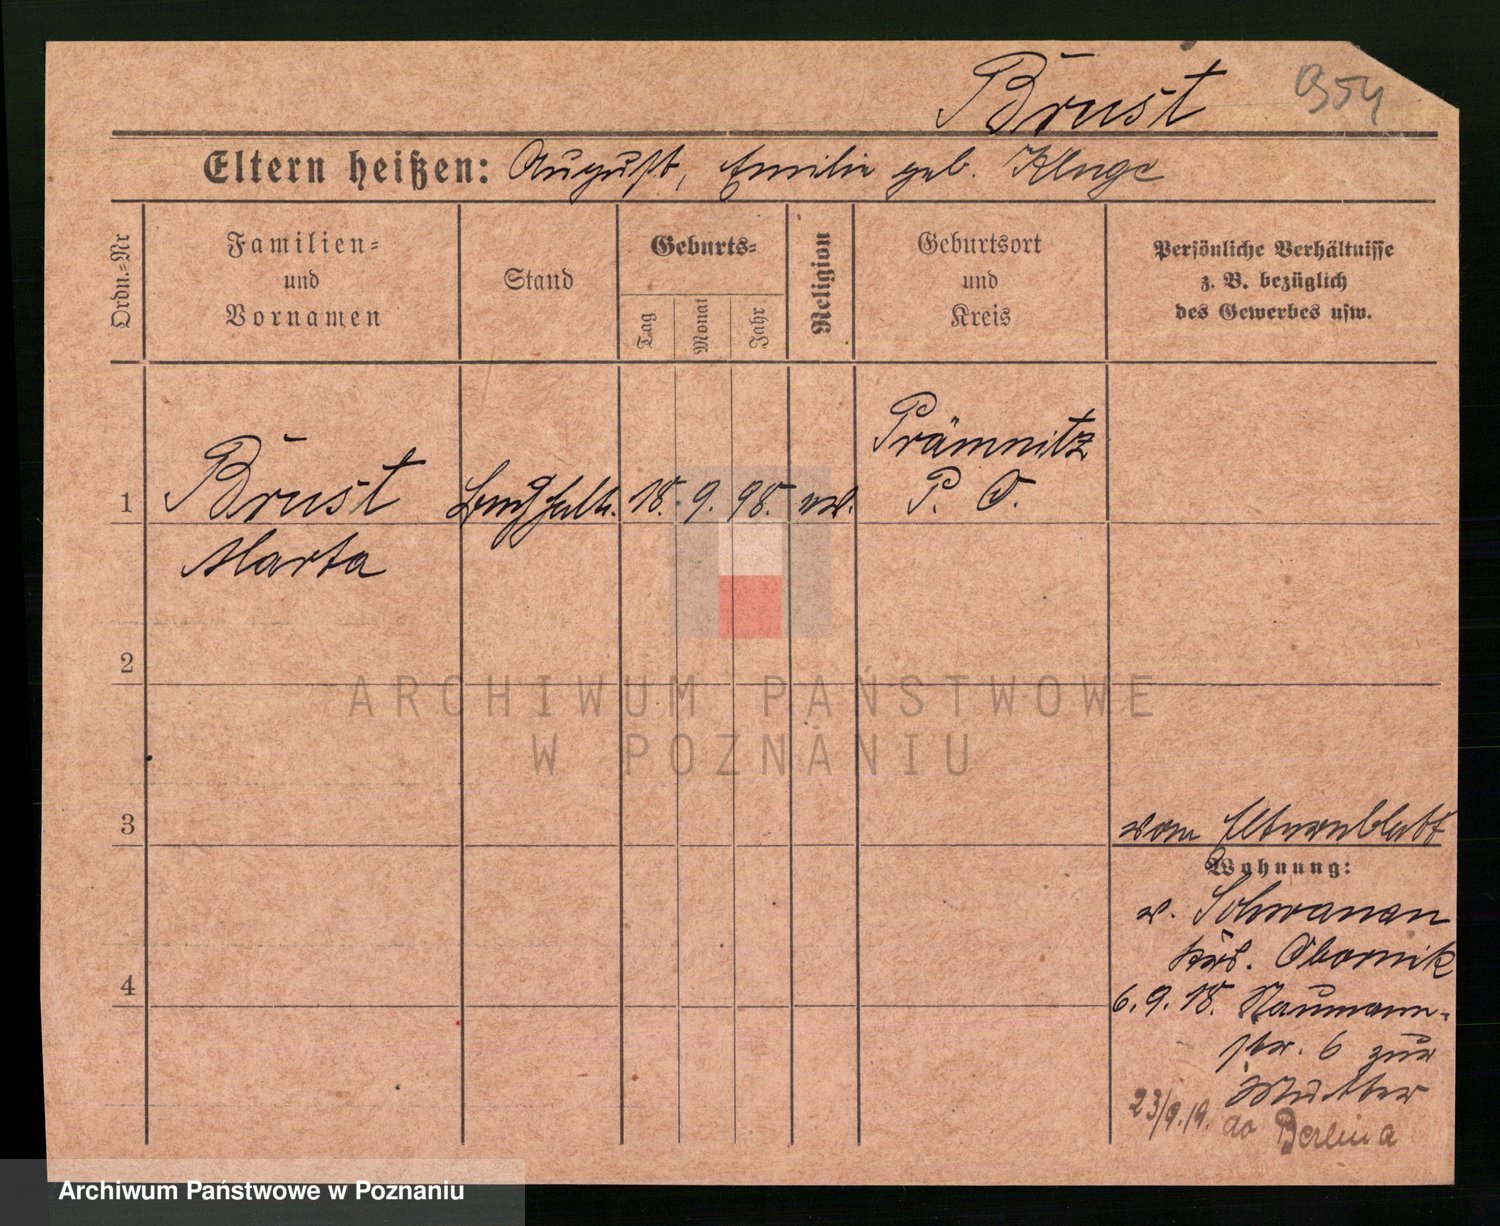 Brust
Eltern heißen: August, Emilie geb. Kluge
Ordn.=Nr
Familien=
und
Vornamen
Stand
Geburts=
Tag
Monat
Jahr
Religion
Geburtsort
und
Kreis
Persönliche Verhältnisse
z. B. bezüglich
des Gewerbes usw.
1
Brust
Marta
Buchhalt.
18. 9. 98.
ev.
Prämnitz
P. O.
2
3
4
vom Elternblatt
Wohnung:
v.
Krs. Obornik
6. 9. 18. Naumann-
str. 6 zur
Mutter
23/9.19. do Berlina
ARCHIWUM PAŃSTWOWE
W POZNANIU
Archiwum Państwowe w Poznaniu